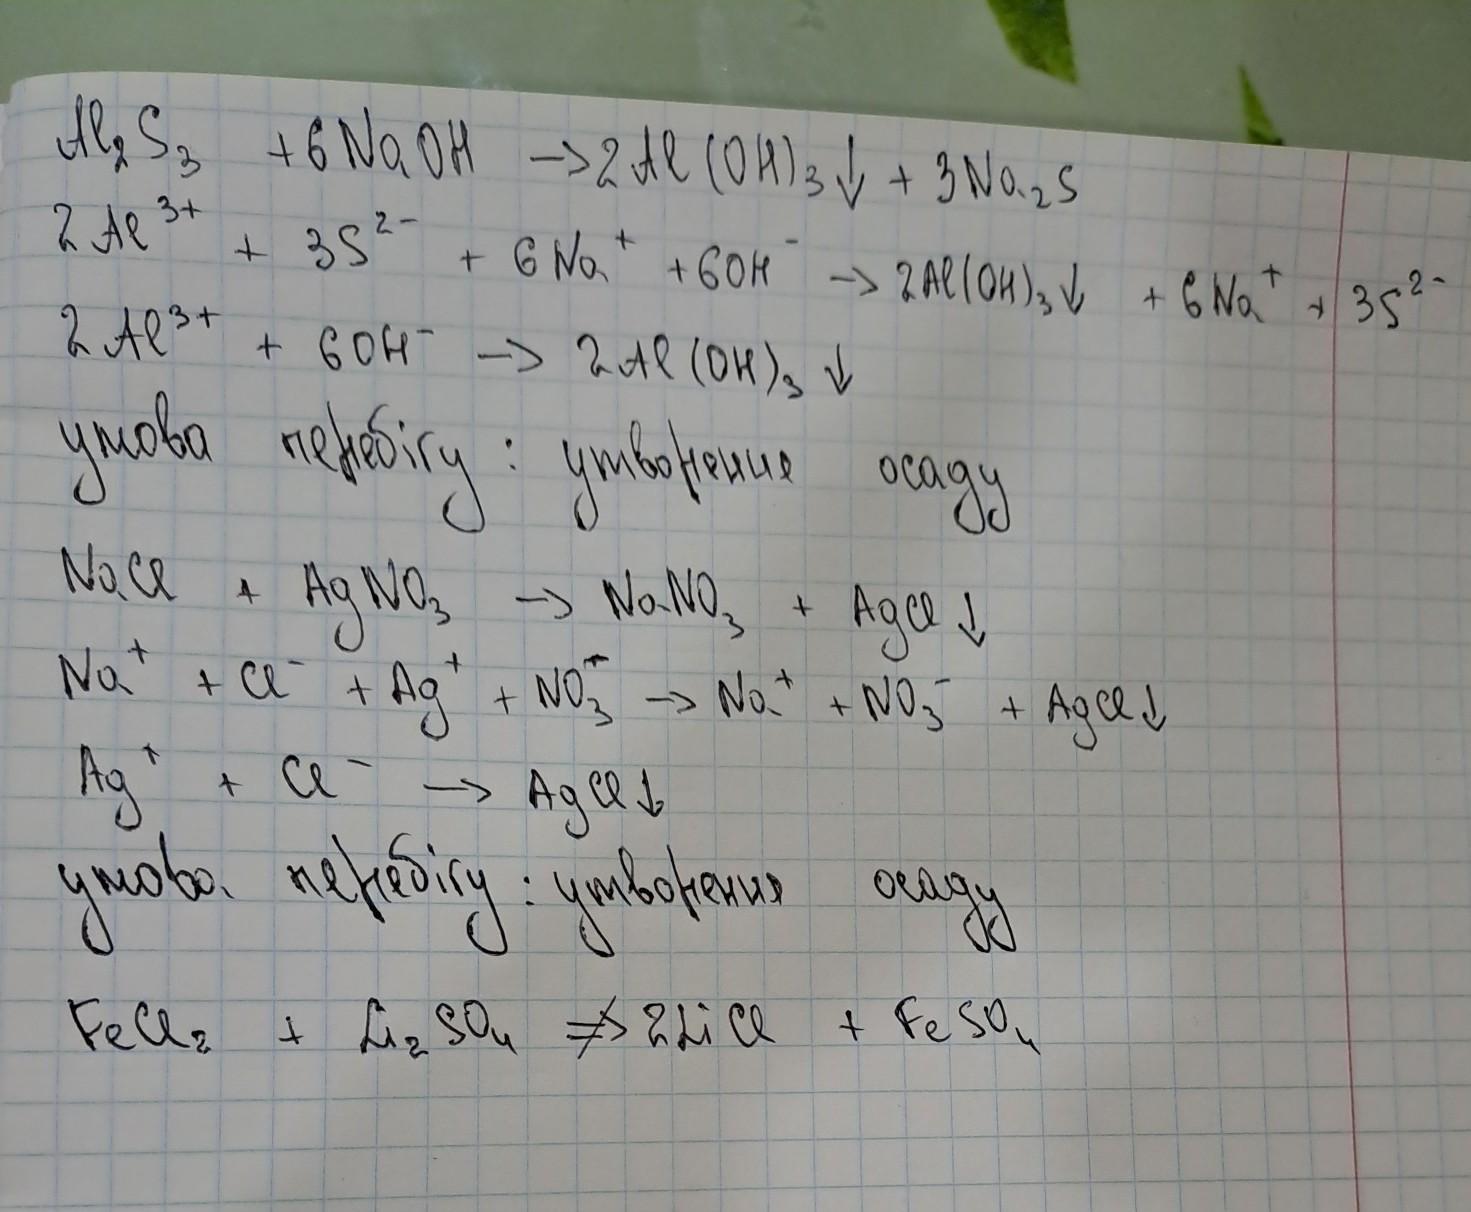 Al₂S₃ + 6NaOH → 2Al(OH)₃↓ + 3Na₂S
2Al³⁺ + 3S²⁻ + 6Na⁺ + 6OH⁻ → 2Al(OH)₃↓ + 6Na⁺ + 3S²⁻
2Al³⁺ + 6OH⁻ → 2Al(OH)₃↓
умова перебігу : утворення осаду
NaCl + AgNO₃ → NaNO₃ + AgCl↓
Na⁺ + Cl⁻ + Ag⁺ + NO₃⁻ → Na⁺ + NO₃⁻ + AgCl↓
Ag⁺ + Cl⁻ → AgCl↓
умова перебігу : утворення осаду
FeCl₂ + Li₂SO₄ ⇏ 2LiCl + FeSO₄